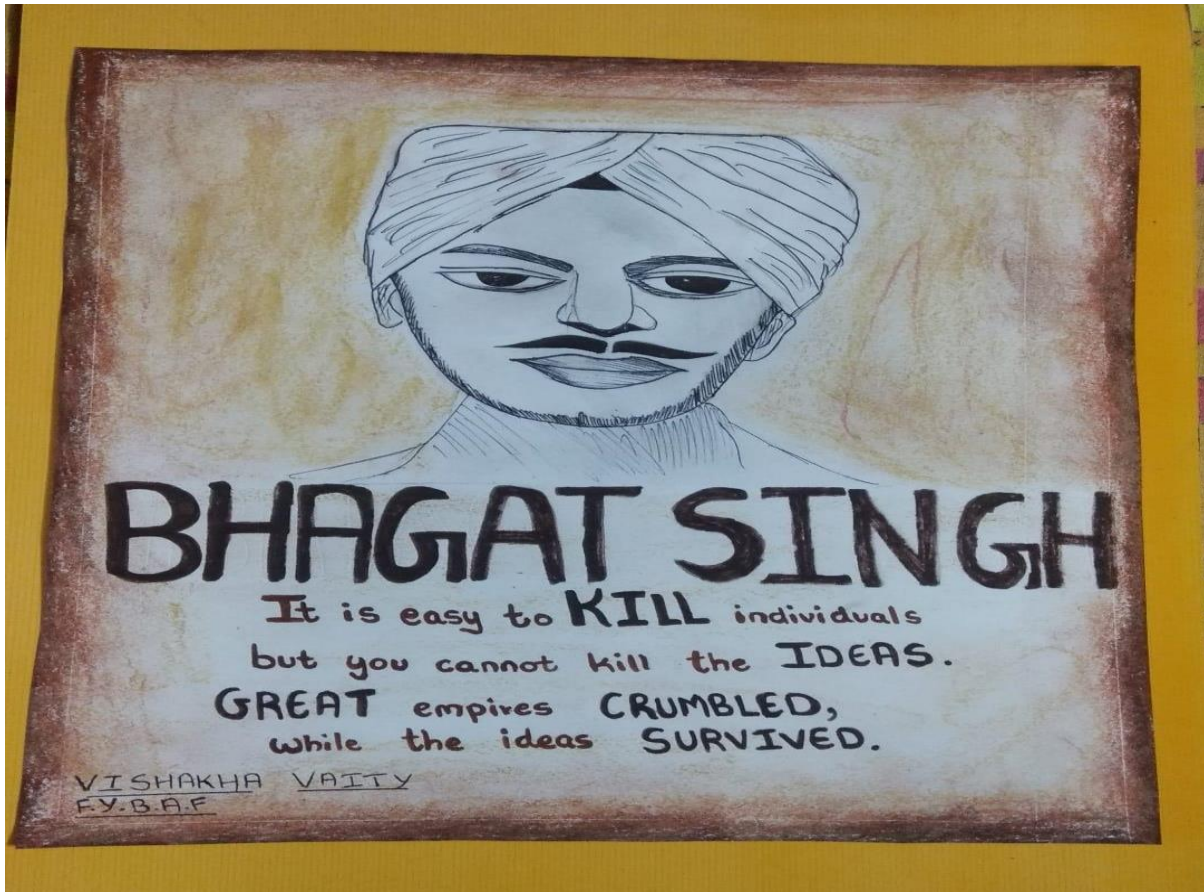 BHAGAT SINGH
It is easy to KILL individuals
but you cannot kill the IDEAS.
GREAT empires CRUMBLED,
while the ideas SURVIVED.
VISHAKHA VAITY
F.Y.B.A.F